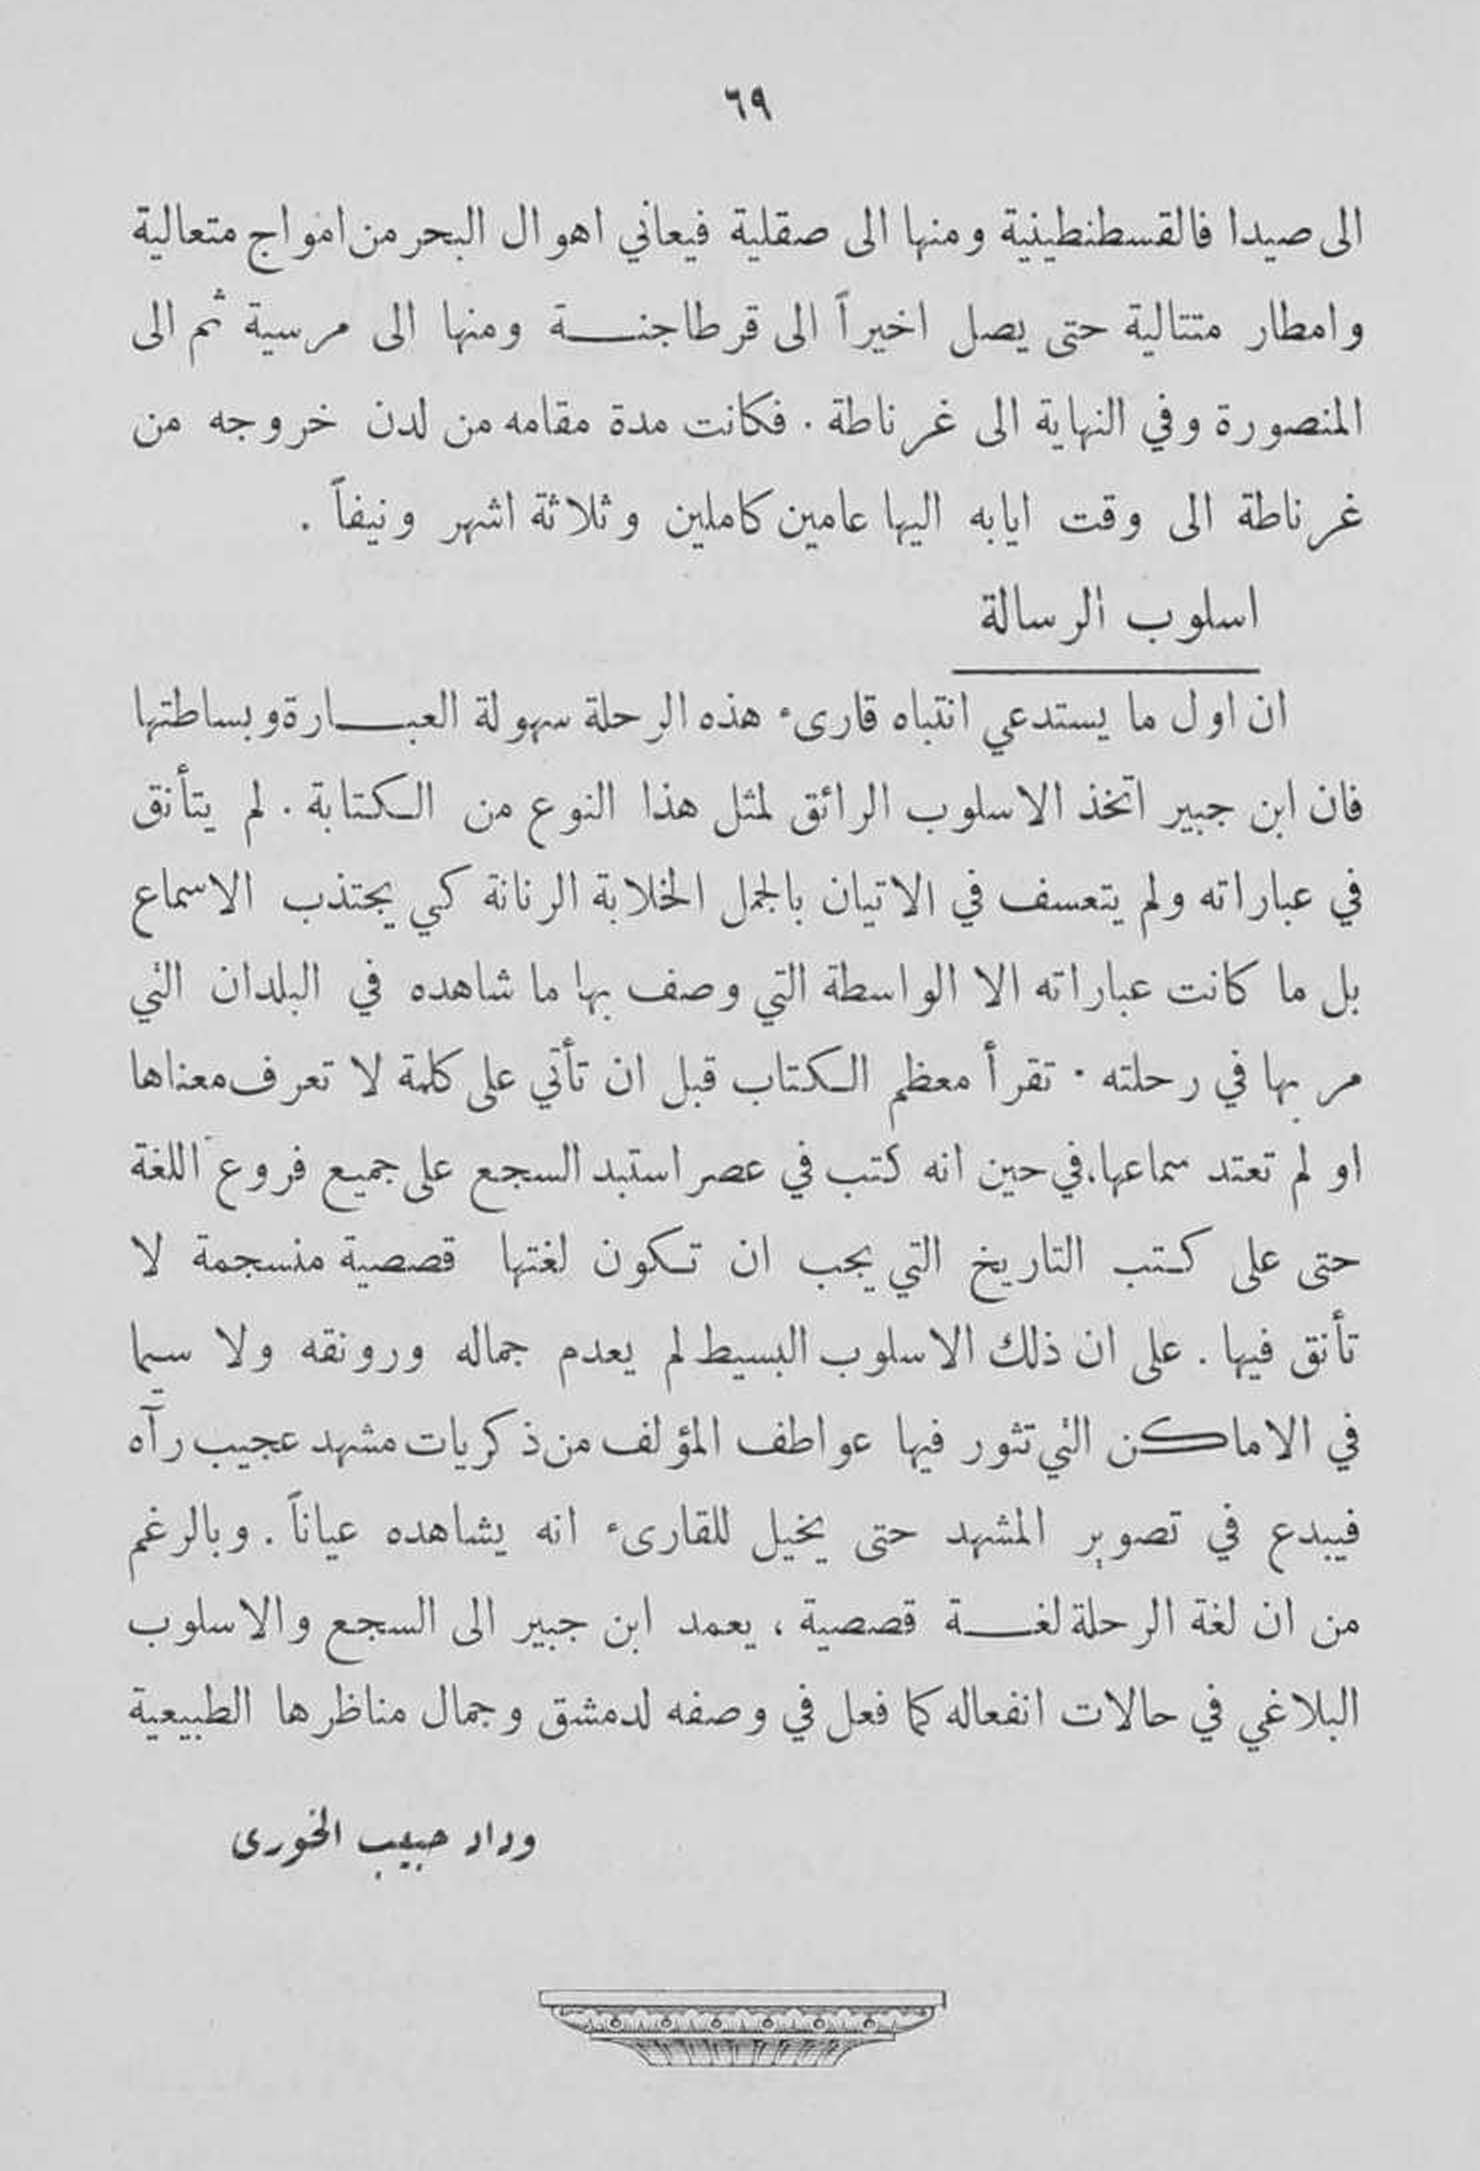 ٦٩
الى صيدا فالقسطنطينية ومنها الى صقلية فيعاني اهوال البحر من امواج متعالية
وامطار متتالية حتى يصل اخيراً الى قرطاجنة ومنها الى مرسية ثم الى
المنصورة وفي النهاية الى غرناطة . فكانت مدة مقامه من لدن خروجه من
غرناطة الى وقت ايابه اليها عامين كاملين وثلاثة اشهر ونيفاً .
اسلوب الرسالة
ان اول ما يستدعي انتباه قارىء هذه الرحلة سهولة العبارة وبساطتها
فان ابن جبير اتخذ الاسلوب الرائق لمثل هذا النوع من الكتابة . لم يتأنق
في عباراته ولم يتعسف في الاتيان بالجمل الخلابة الرنانة كي يجتذب الاسماع
بل ما كانت عباراته الا الواسطة التي وصف بها ما شاهده في البلدان التي
مر بها في رحلته . تقرأ معظم الكتاب قبل ان تأتي على كلمة لا تعرف معناها
او لم تعتد سماعها، في حين انه كتب في عصر استبد السجع على جميع فروع اللغة
حتى على كتب التاريخ التي يجب ان تكون لغتها قصصية منسجمة لا
تأنق فيها . على ان ذلك الاسلوب البسيط لم يعدم جماله ورونقه ولا سيما
في الاماكن التي تثور فيها عواطف المؤلف من ذكريات مشهد عجيب رآه
فيبدع في تصوير المشهد حتى يخيل للقارىء انه يشاهده عياناً . وبالرغم
من ان لغة الرحلة لغة قصصية ، يعمد ابن جبير الى السجع والاسلوب
البلاغي في حالات انفعاله كما فعل في وصفه لدمشق وجمال مناظرها الطبيعية
وداد حبيب الخورى